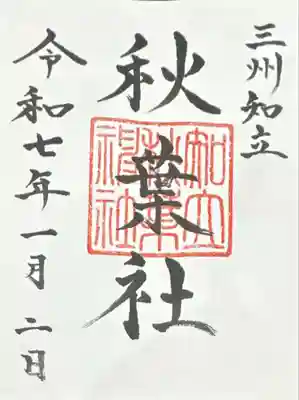 三州知立
秋葉社
知立
秋葉
神社
令和七年一月二日